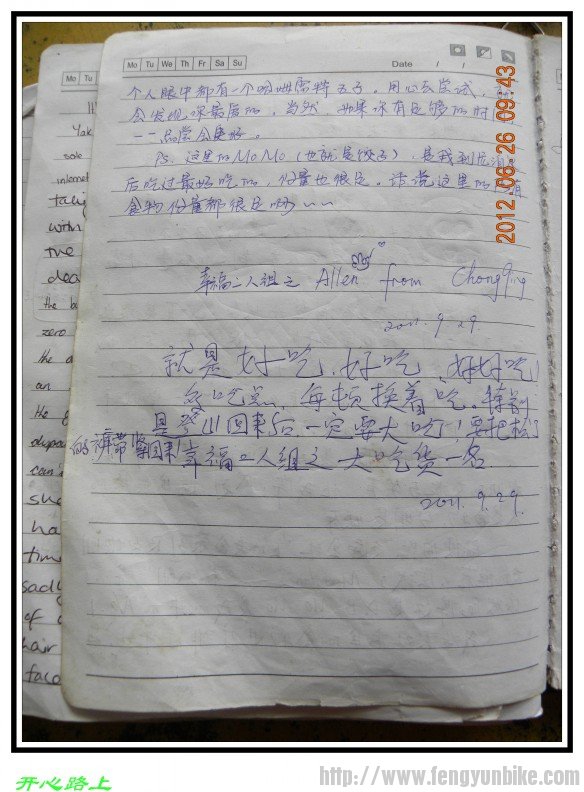 Mo Tu We Th Fr Sa Su
Date / /
个人眼中都有一个哈姆雷特五子。用心去尝试,
会发现你最爱的,当然,如果你有足够的时间
一一品尝会更好。
PS. 这里的MoMo(也就是饺子),是我到尼泊尔
后吃过最好吃的,份量也很足。话说这里的所有
食物份量都很足啊~~
幸福二人组之 Allen from Chongqing
2011.9.29.
就是好吃、好吃、好好吃!
多吃点,每顿换着吃。特别
是登山回来后,一定要大吃!要把松了
的裤带紧回来!幸福二人组之一大吃货一名.
2011.9.29.
2012 06 26 09 43
Mo Tu
Yak
sole
internet
with
the
dea
the bu
zero
the
an
the
can
she
ha
time
sadly
of
hair
face
开心路上
http://www.fengyunbike.com